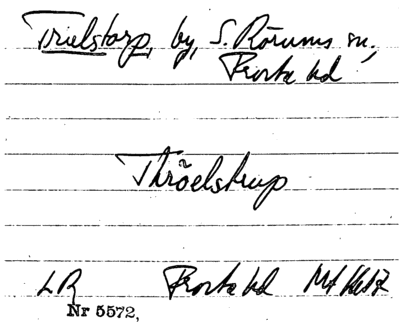 Trulstorp, by, S. Rörums sn,
Frosta hd
Thröelstrup
LR Frosta hd
Nr 5572,